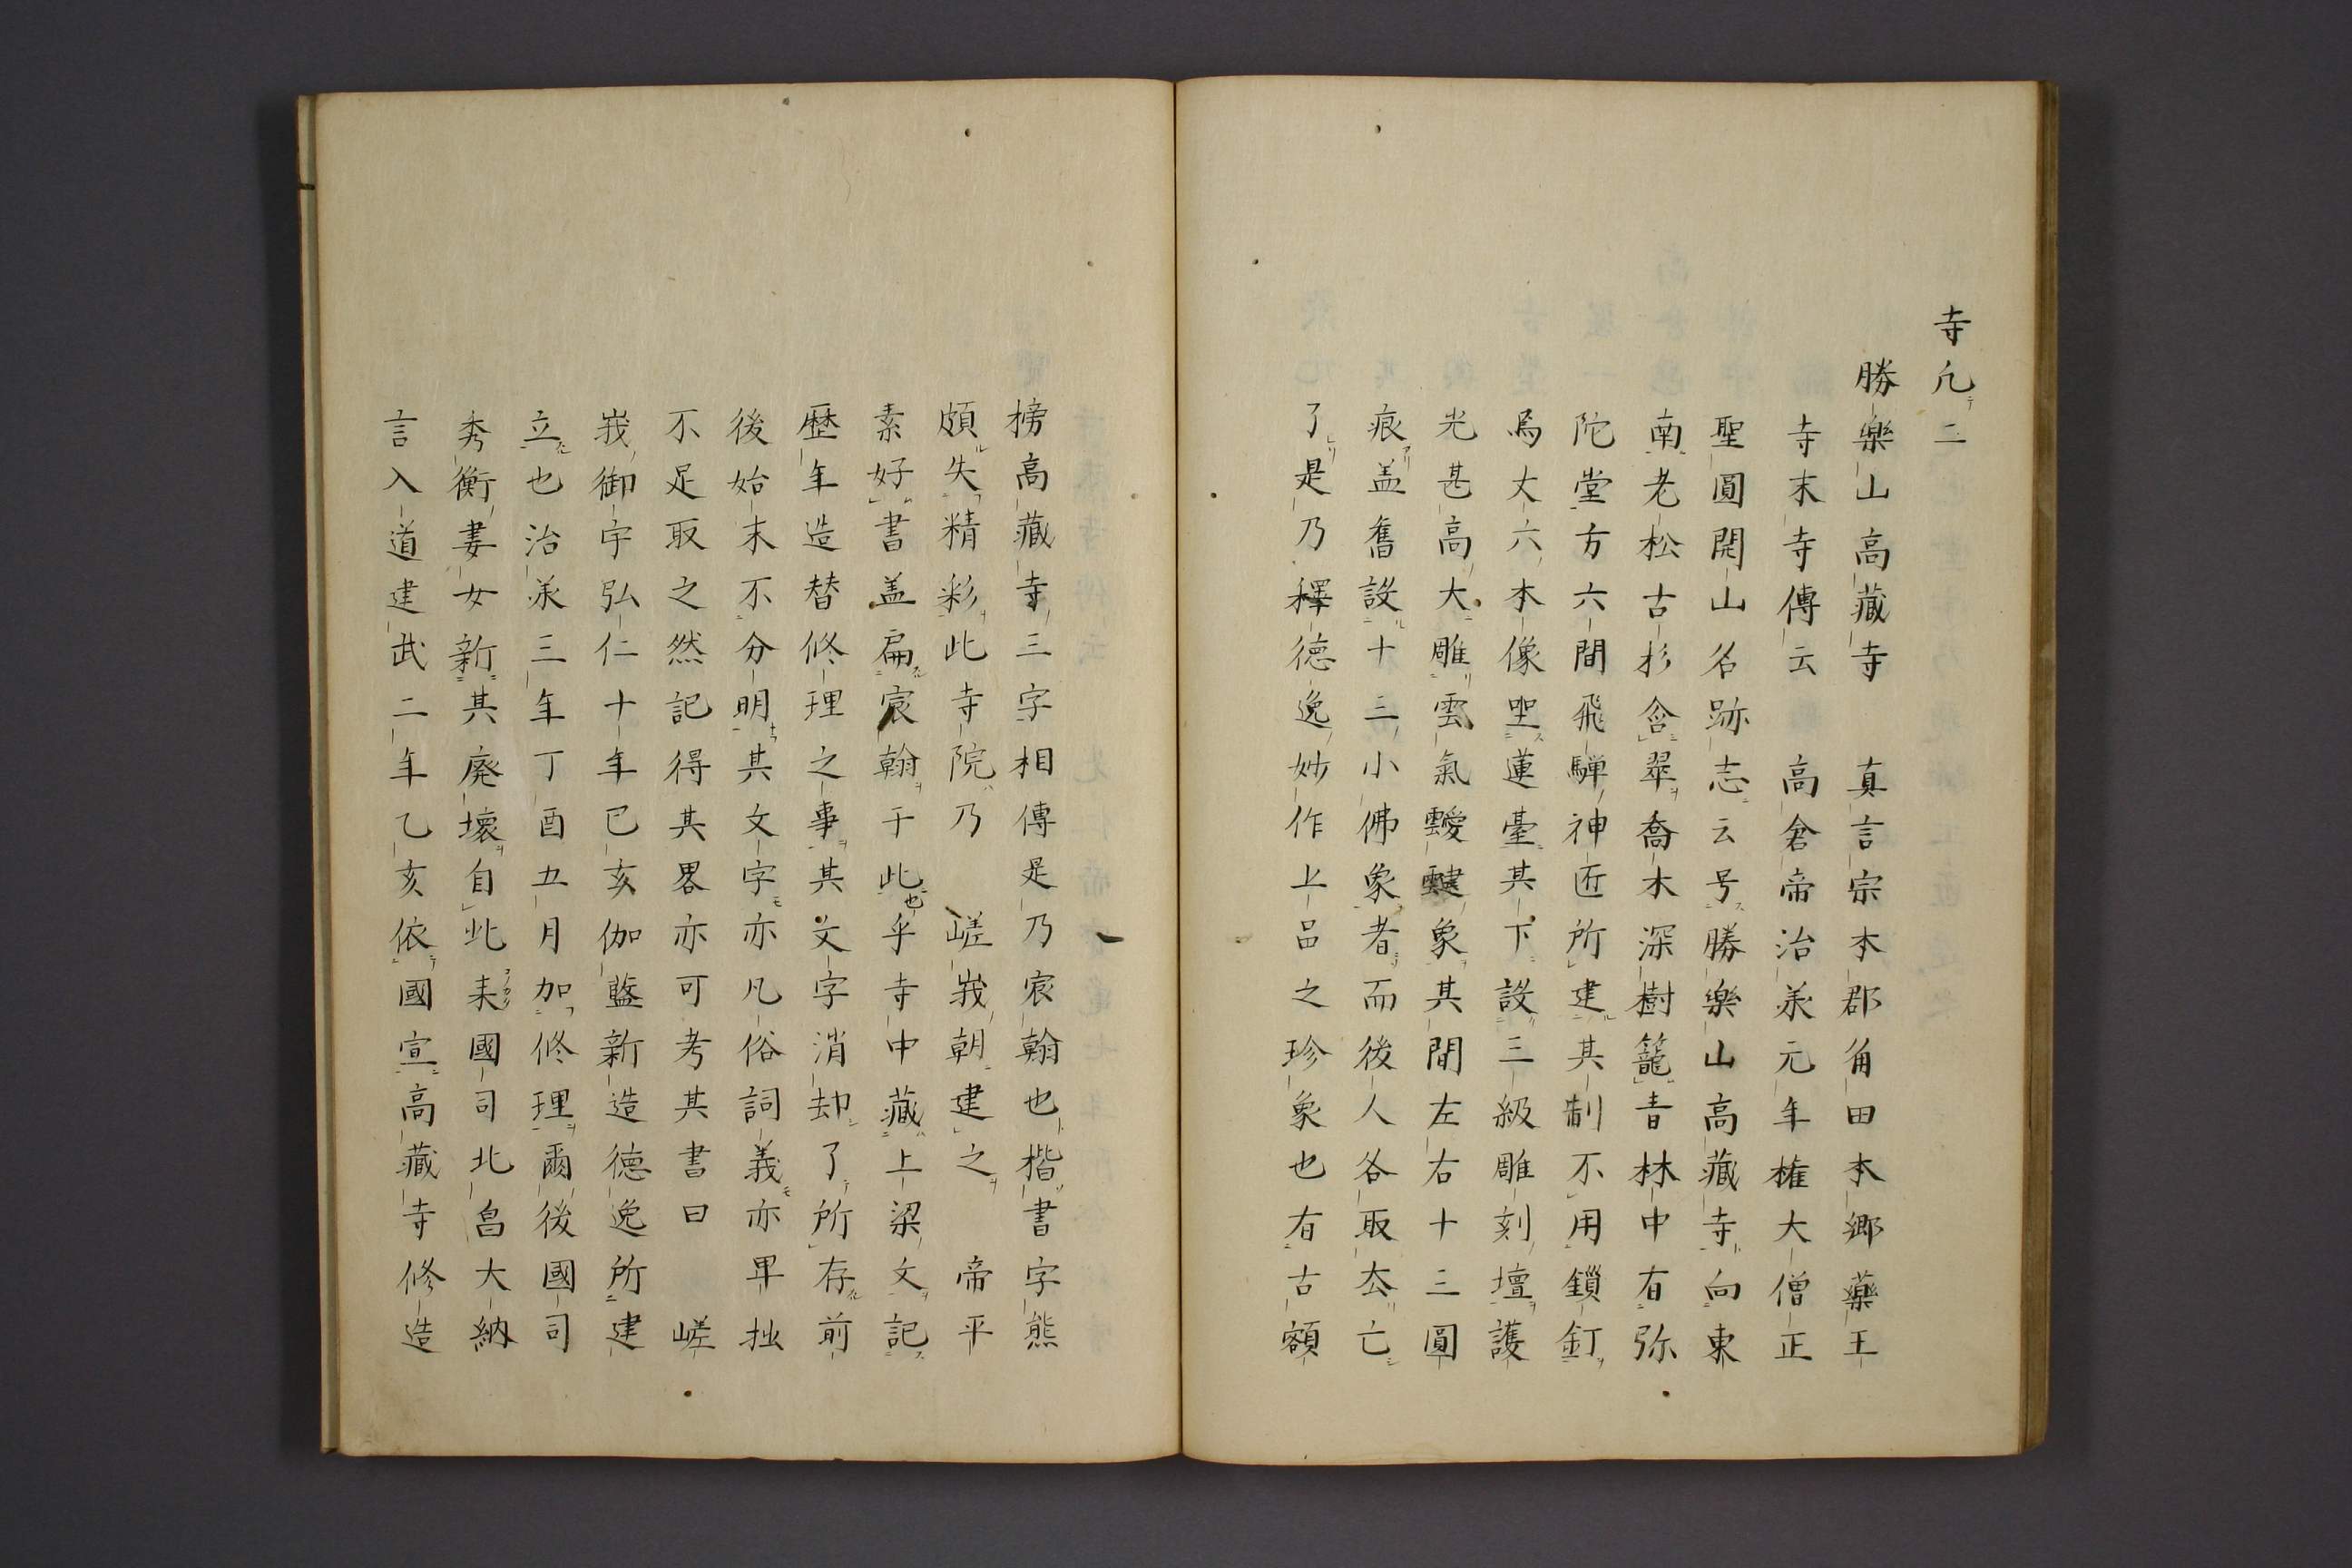 寺凢二
勝樂山高藏寺　真言宗本郡角田本郷藥王
寺末寺傳云　高倉帝治承元年権大僧正
聖圓開山名跡志云号勝樂山高藏寺向東
南老松古杉含翠喬木深樹籠青林中有弥
陀堂方六間飛騨神匠所建其制不用鎖釘
焉丈六木像坐蓮臺其下設三級雕刻壇護
光甚高大雕雲氣靉靆象其間左右十三圓
痕盖舊設十三小佛象者而後人各取厺亡
了是乃釋德逸妙作上品之珍象也有古額
榜高藏寺三字相傳是乃宸翰也楷書字熊
頗失精彩此寺院乃　嵯峩朝建之　帝平
素好書盖扁宸翰于此也乎寺中藏上梁文記
歴年造替修理之事其文字消却了所存前
後始末不分明其文字亦凡俗詞義亦卑拙
不足取之然記得其畧亦可考其書曰　嵯
峩御宇弘仁十年己亥伽藍新造德逸所建
立也治承三年丁酉五月加修理爾後國司
秀衡妻女新其廃壞自此来國司北畠大納
言入道建武二年乙亥依國宣高藏寺修造